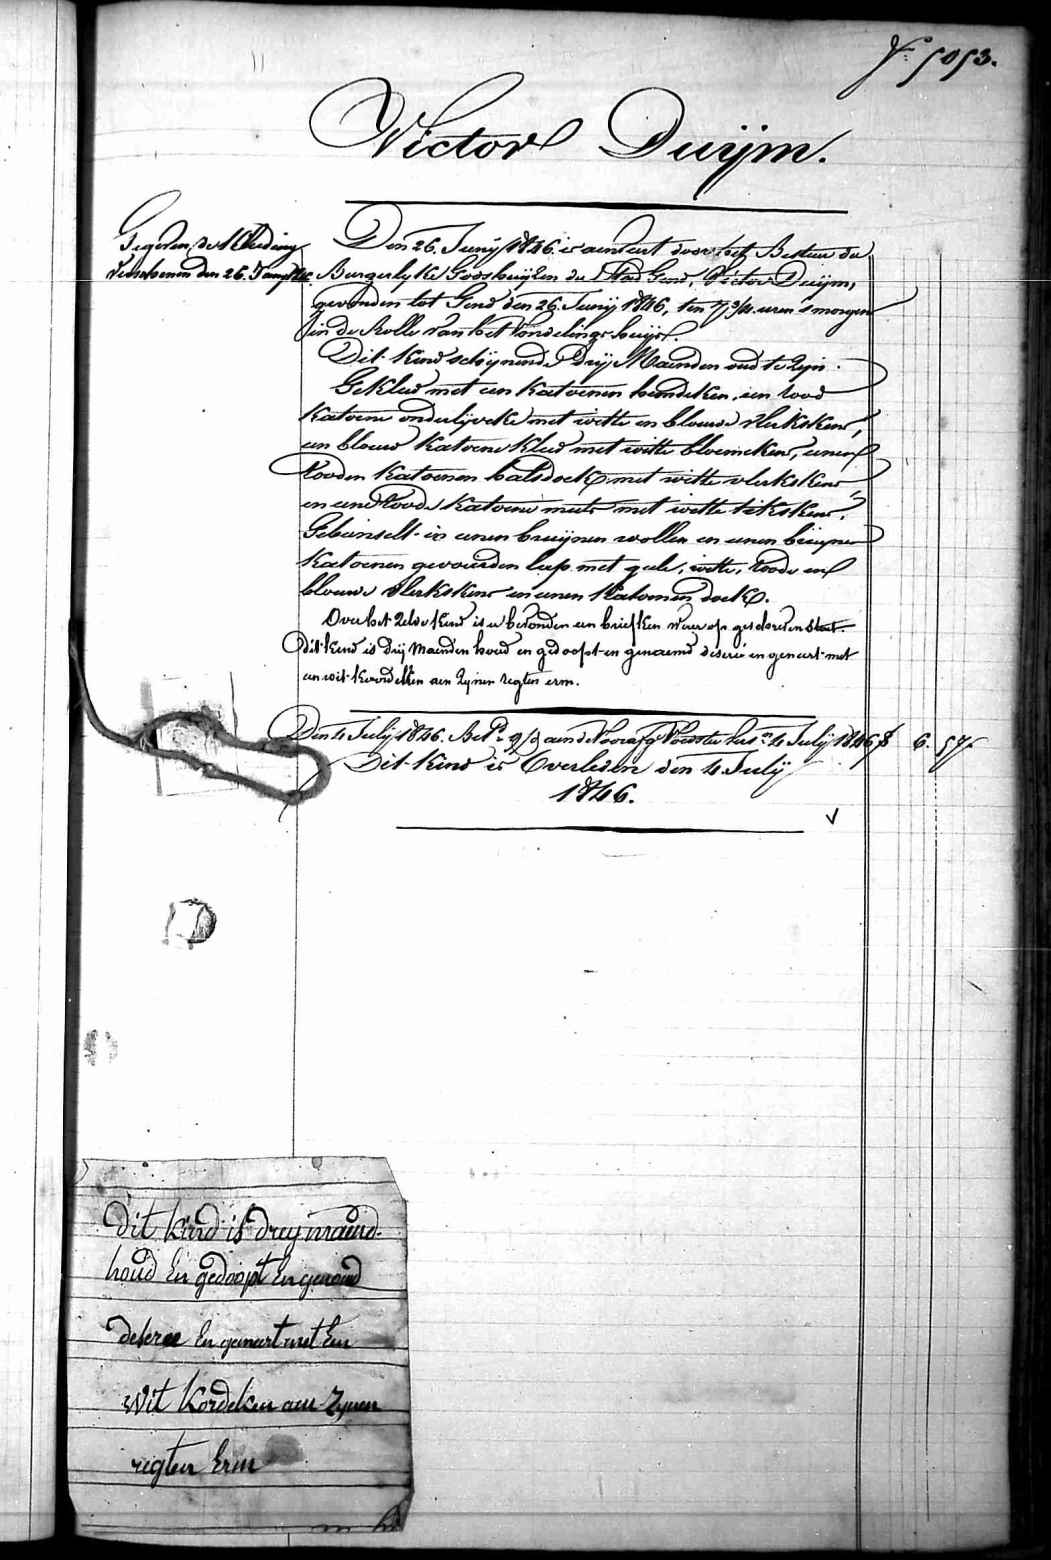 Nº 5053.
Victor Duijm.
Gegeven de Kleeding
verschenen den 26. Juny 1846.
Den 26. Junij 1846. is aenveert door het Bestuer der
Burgerlyke Godshuijzen der Stad Gend, Victor Duijm,
gevonden tot Gend den 26. Junij 1846, ten 7 3/4 uren 's morgens
in de Rolle van het Vondelingshuijs.
Dit kind schijnende Drij Maenden oud te Zijn.
Gekleed met een katoenen hemdeken, een rood
katoene onderlijveke met witte en blouwe vlekskens,
een blouw katoene kleed met witte bloemekens, eenen
rooden katoenen halsdoek met witte vlekskens
en eene roode katoene muts met witte titskens.
Gebunselt in eenen bruijnen wollen en eenen bruynen
katoenen gevoerden lap met gele, witte, roode en
blouwe vlekskens en eenen katoenen doek.
Over het zelve kind is er bevonden een briefken waer op geschreven staet.
dit kind is drij Maenden houd en gedoopt en genaemd diserée en gemert met
een wit koordeken aen zynen regten erm.
Den 4 July 1846. Bet. aen de Voorsz. Voedster tus. 4 July 1846 6. 57.
Dit kind is Overleden den 4 July
1846.
Dit kind is drey maend
houd En gedoopt En genamd
deseree En gemert met Een
wit kordeken aen Zynen
regten Erm